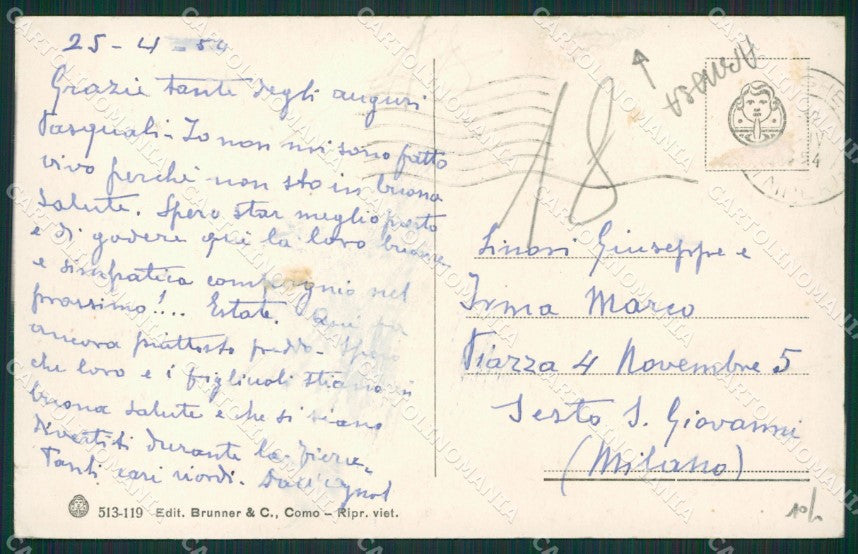 25-4-54
Grazie tante degli auguri
Pasquali. Io non mi sono fatto
vivo perchè non sto in buona
salute. Spero star meglio presto
e di godere qui la loro buona
e simpatica compagnia nel
prossimo!... Estate. Qui fa
ancora piuttosto freddo. Spero
che loro e i figliuoli stiano in
buona salute e che si siano
divertiti durante la Fiera.
Tanti cari ricordi.
513-119 Edit. Brunner & C., Como – Ripr. viet.
18
Giuseppe e
Irma Marco
Piazza 4 Novembre 5
Sesto S. Giovanni
(Milano)
CARTOLINOMANIA